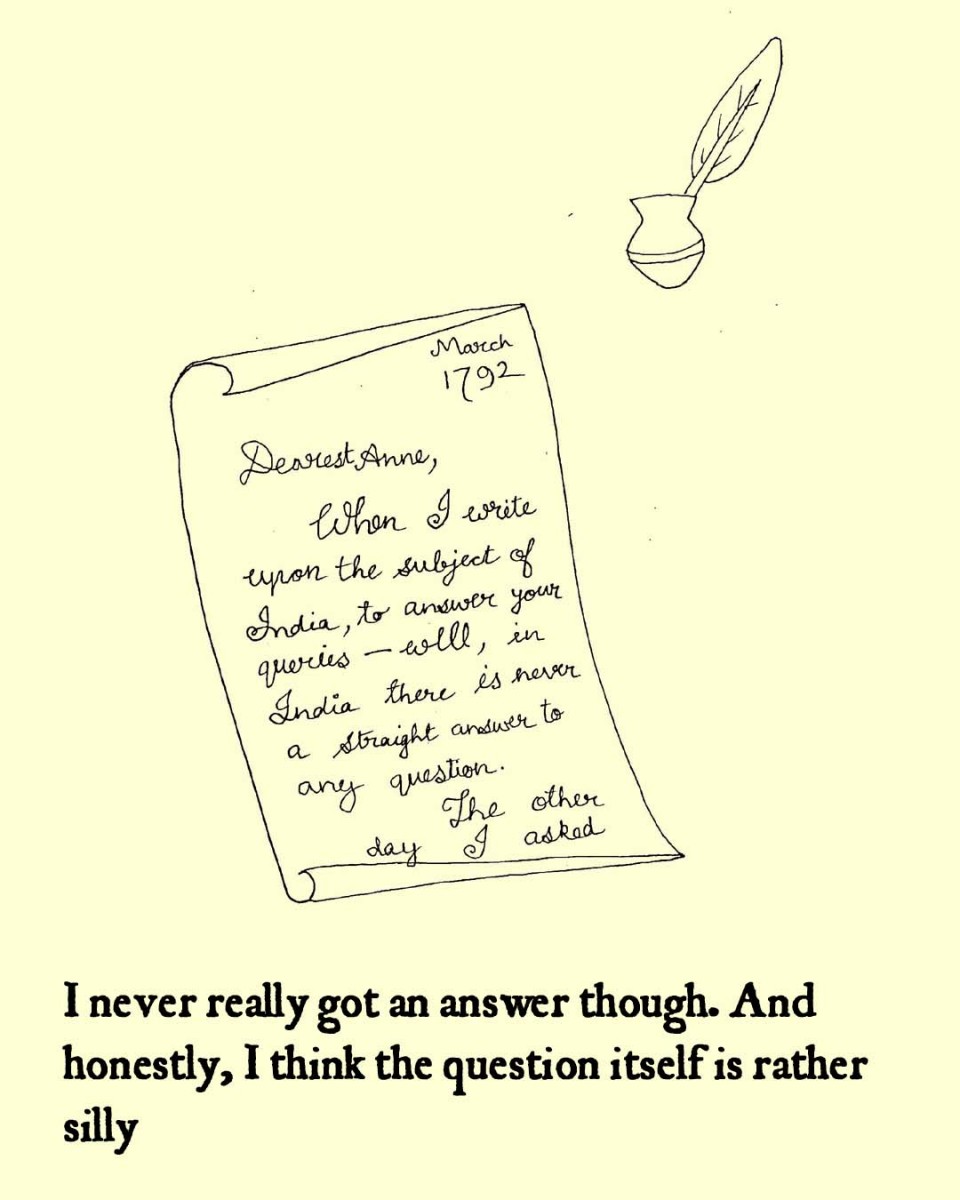 March
1792
Dearest Anne,
When I write
upon the subject of
India, to answer your
queries – well, in
India there is never
a straight answer to
any question.
The other
day I asked
I never really got an answer though. And
honestly, I think the question itself is rather
silly